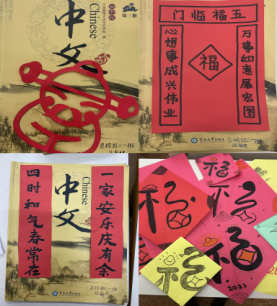 中文
Chinese
五福临门
万事如意展宏图
心想事成兴伟业
福
一家安乐庆有余
四时和气春常在
中文
Chinese
福
福
福
福
2021